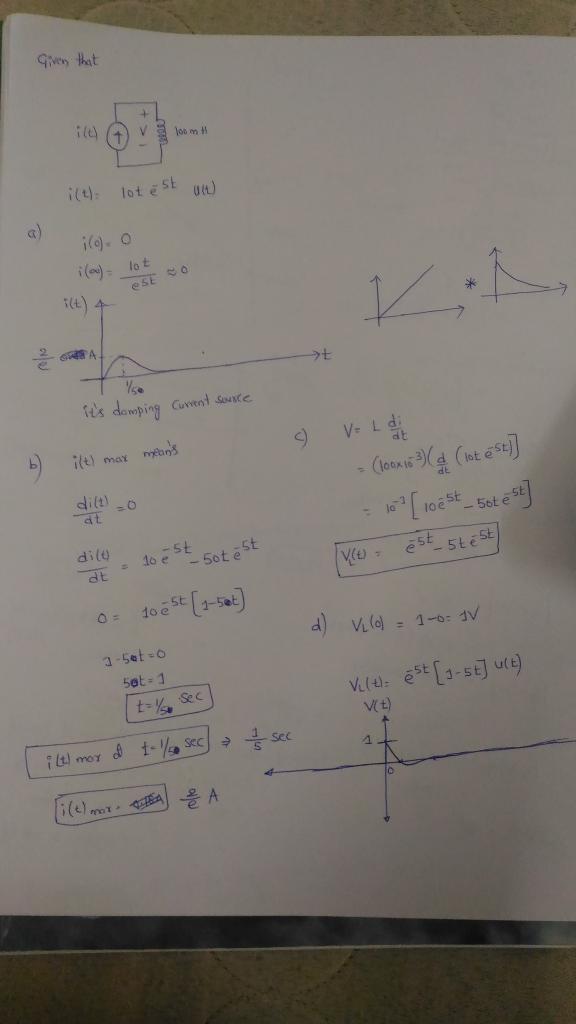 Given that
i(t) + V - 100 mH
i(t) = 10t e^-5t u(t)
a)
i(0) = 0
i(∞) = 10t / e^5t ≈ 0
i(t)
2/e A
t
it's damping current source
b) i(t) max mean's
di(t)/dt = 0
di(t)/dt = 10e^-5t - 50t e^-5t
0 = 10e^-5t [1-5t]
1-5t = 0
5t = 1
sec
i(t) max sec ⇒ 1/5 sec
i(t) max = 2/e A
*
c) V = L di/dt
= (100x10^-3) (d/dt (10t e^-5t)]
[10e^-5t - 50t e^-5t]
VL(t) = e^-5t - 5t e^-5t
d) VL(0) = 1-0 = 1V
VL(t) = e^-5t [1-5t] u(t)
V(t)
1
0